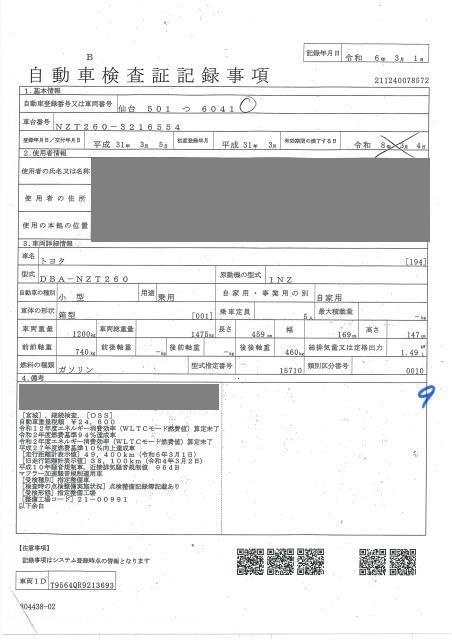 B
記録年月日 令和 6年 3月 1日
自動車検査証記録事項
211240078572
1.基本情報
自動車登録番号又は車両番号 仙台 501 つ 6041
車台番号 NZT260-3216554
登録年月日/交付年月日 平成 31年 3月 5日 初度登録年月 平成 31年 3月 有効期間の満了する日 令和 8年 3月 4日
2.使用者情報
使用者の氏名又は名称
使用者の住所
使用の本拠の位置
3.車両詳細情報
車名 トヨタ [194]
型式 DBA-NZT260 原動機の型式 1NZ
自動車の種別 小型 用途 乗用 自家用・事業用の別 自家用
車体の形状 箱型 [001] 乗車定員 5人 最大積載量 -kg
車両重量 1200kg 車両総重量 1475kg 長さ 459cm 幅 169cm 高さ 147cm
前前軸重 740kg 前後軸重 -kg 後前軸重 -kg 後後軸重 460kg 総排気量又は定格出力 1.49
燃料の種類 ガソリン 型式指定番号 15710 類別区分番号 0010
4.備考
9
[宮城],継続検査,[OSS]
自動車重量税額 ¥24,600
令和12年度エネルギー消費効率(WLTCモード燃費値)算定未了
令和2年度燃費基準94%達成車
令和2年度エネルギー消費効率(WLTCモード燃費値)算定未了
平成27年度燃費基準10%向上達成車
[走行距離計表示値]49,400km(令和6年3月1日)
[旧走行距離計表示値]38,100km(令和4年3月2日)
平成10年騒音規制車,近接排気騒音規制値 96dB
マフラー加速騒音規制適用車
[受検種別]指定整備車
[検査時の点検整備実施状況]点検整備記録簿記載あり
[受検形態]指定整備工場
[整備工場コード]21-00991
以下余白
【注意事項】
記録事項はシステム登録時点の情報となります
車両ID T9564QR9213693
804438-02